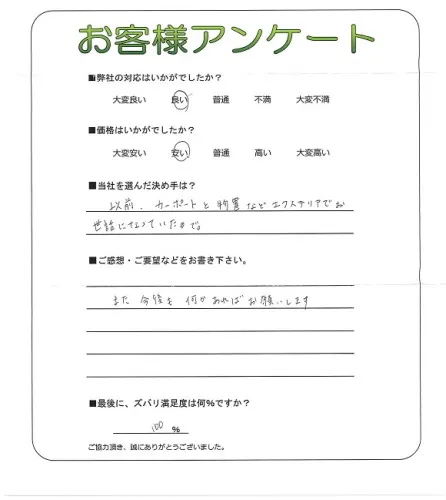 お客様アンケート
■弊社の対応はいかがでしたか？
大変良い 良い 普通 不満 大変不満
■価格はいかがでしたか？
大変安い 安い 普通 高い 大変高い
■当社を選んだ決め手は？
以前、カーポートと物置などエクステリアでお
世話になっていたので。
■ご感想・ご要望などをお書き下さい。
また今後も何かあればお願いします
■最後に、ズバリ満足度は何%ですか？
100 %
ご協力頂き、誠にありがとうございました。